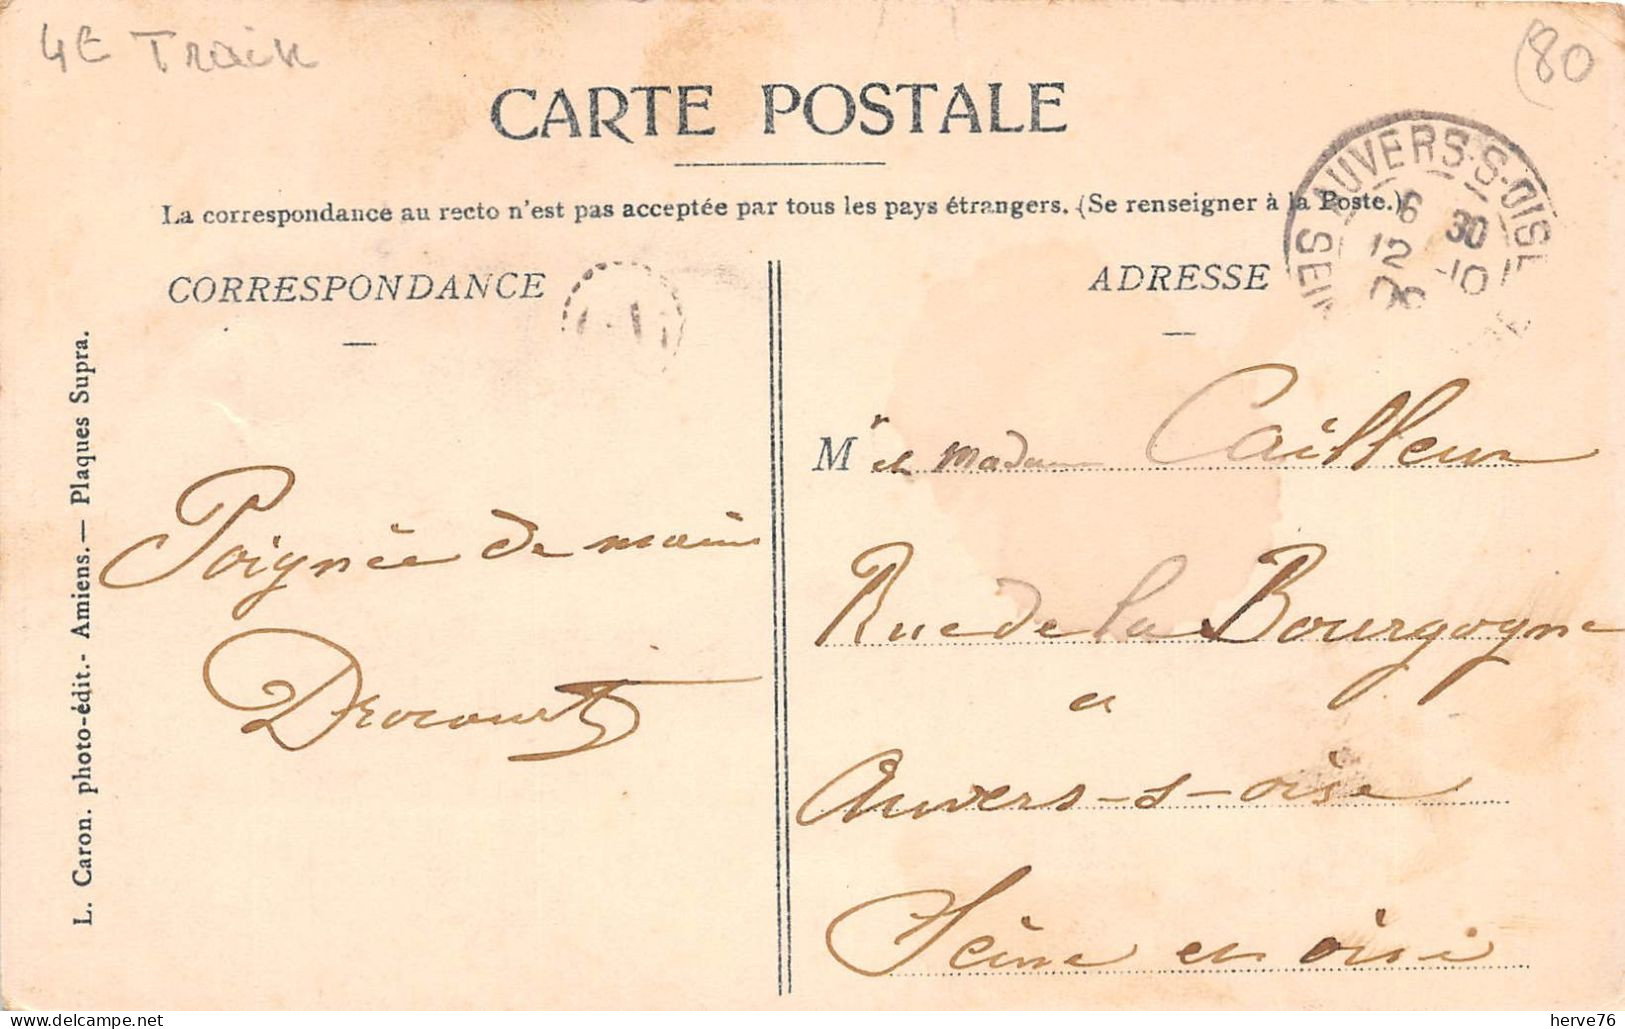 4E Train
(80
CARTE POSTALE
La correspondance au recto n'est pas acceptée par tous les pays étrangers. (Se renseigner à la Poste.)
AUVERS-S-OISE
6 30
12 -10
CORRESPONDANCE
ADRESSE
L. Caron. photo-édit.- Amiens.— Plaques Supra.
Poignée de main
Drocourt
Mr et Madame Cailleux
Rue de la Bourgogne
a
Auvers-s-oise
Seine et oise
herve76